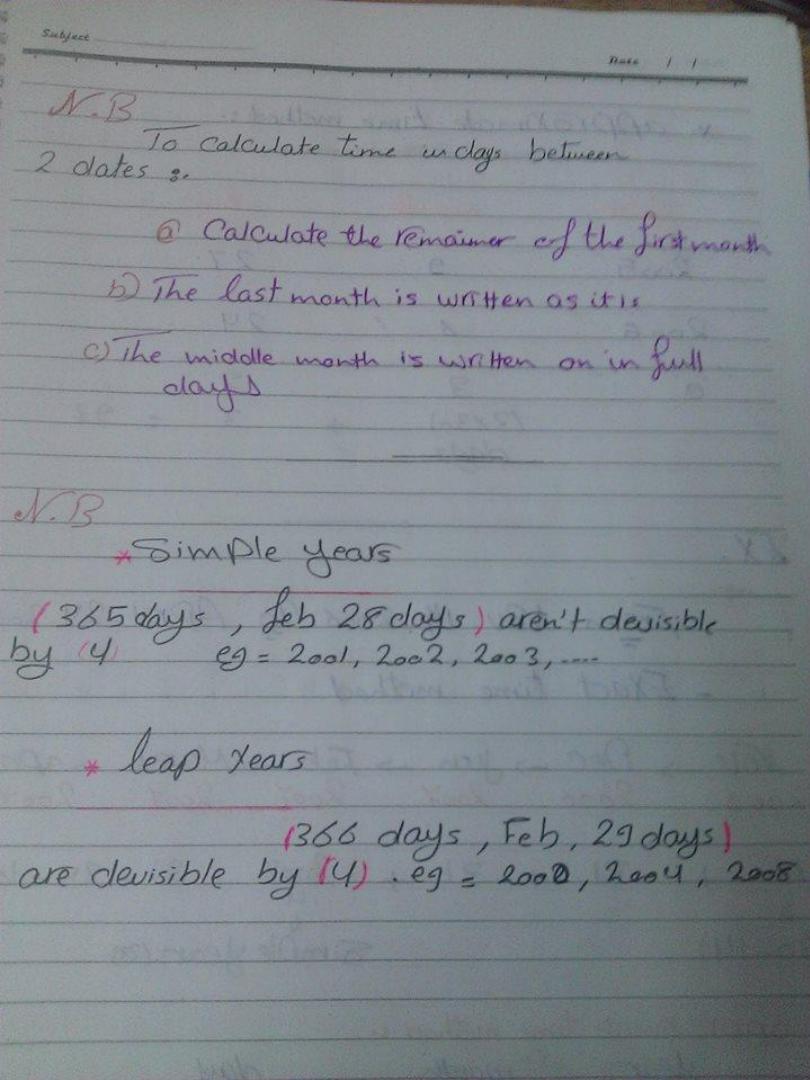 Subject
Date / /
N.B
To calculate time in days between
2 dates :.
a) Calculate the remaimer of the first month
b) The last month is written as it is
c) The middle month is written on in full
days
N.B
* Simple years
(365 days , feb 28 days) aren't devisible
by (4) eg = 2001, 2002, 2003, ....
* leap years
(366 days , Feb, 29 days)
are devisible by (4) . eg = 2000, 2004, 2008